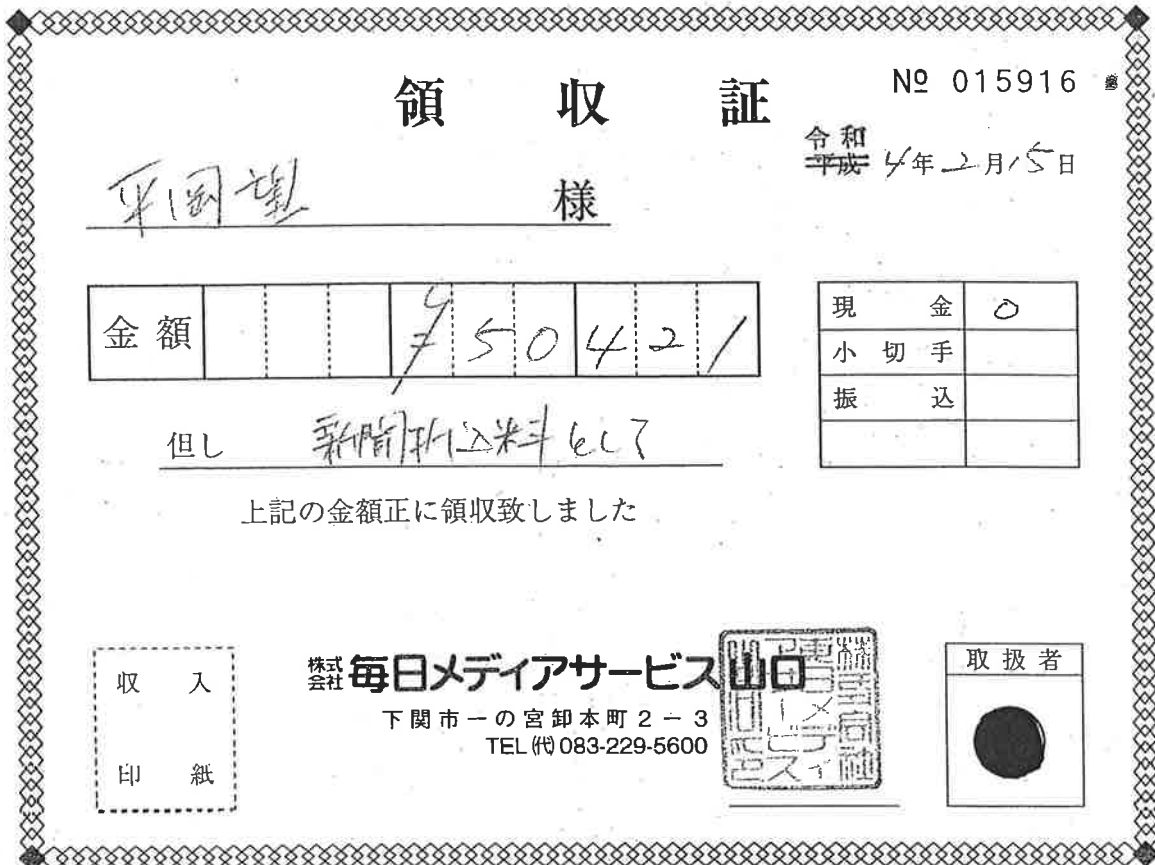 領収証
№ 015916
令和
平成 4年2月15日
平岡望 様
金額 ¥50421
現金 0
小切手
振込
但し 新聞折込料として
上記の金額正に領収致しました
収入
印紙
株式会社 毎日メディアサービス山口
下関市一の宮卸本町2-3
TEL(代)083-229-5600
取扱者